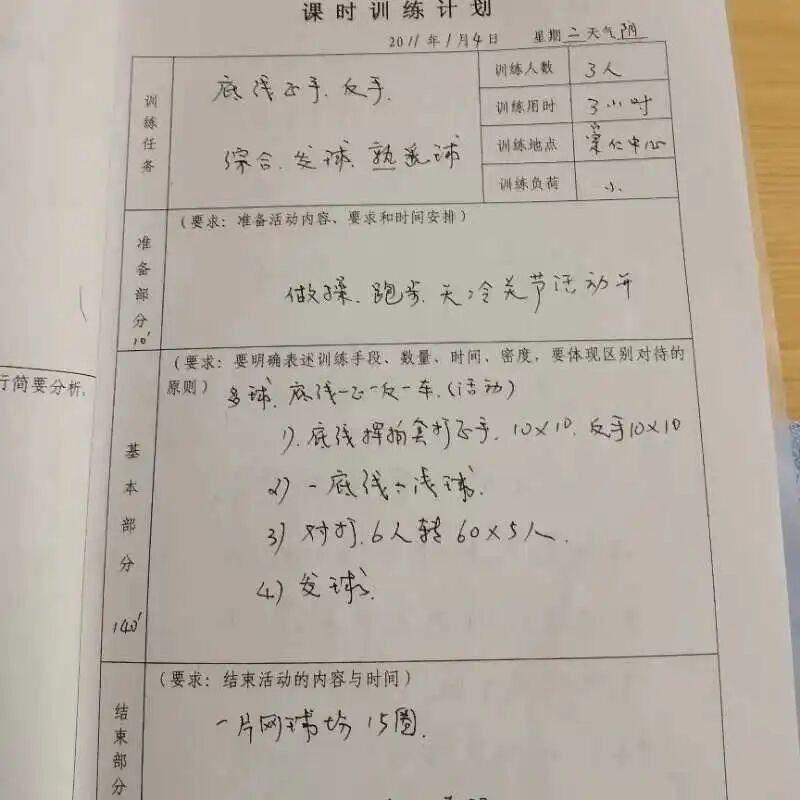 课时训练计划
2011年1月4日 星期二天气阴
训练任务
底线正手、反手、
综合、发球、熟悉球
训练人数 3人
训练用时 3小时
训练地点 中心
训练负荷 小
准备部分 10'
(要求：准备活动内容、要求和时间安排)
做操、跑步、天冷关节活动开
行简要分析,
基本部分 140'
(要求：要明确表述训练手段、数量、时间、密度，要体现区别对待的
原则) 多球、底线一正一反一车、(活动)
1)、底线挥拍套打正手、10×10、反手10×10
2) 一底线六浅球、
3) 对打、6人转 60×5人.
4) 发球、
结束部分
(要求：结束活动的内容与时间)
一片网球场 15圈.